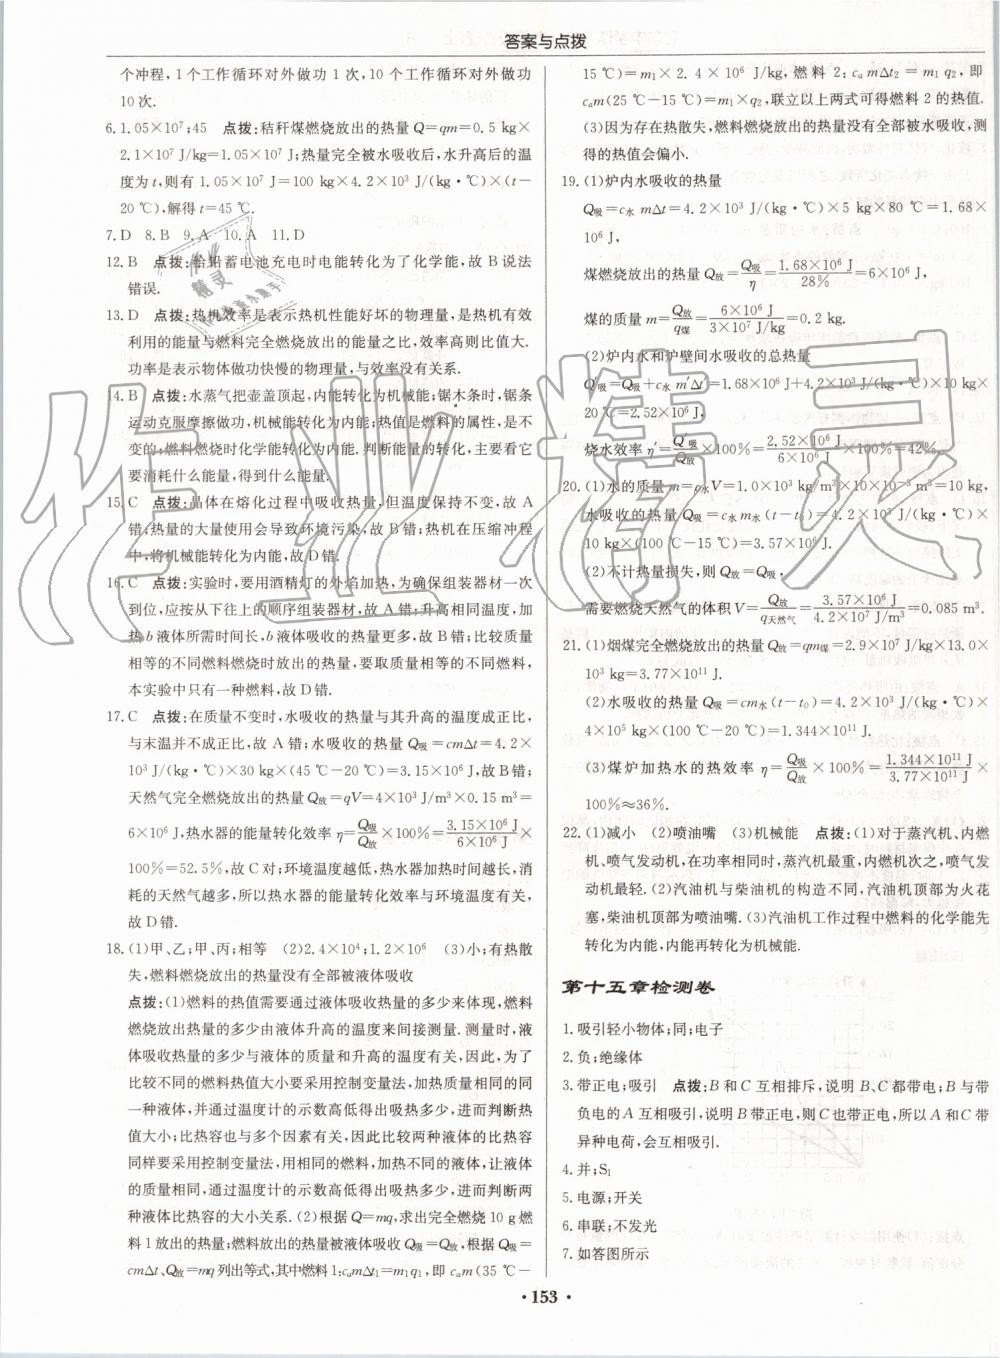 答案与点拨
个冲程,1个工作循环对外做功1次,10个工作循环对外做功
10次.
6.1.05×10⁷;45 点拨:秸秆煤燃烧放出的热量Q=qm=0.5 kg×
2.1×10⁷ J/kg=1.05×10⁷ J;热量完全被水吸收后,水升高后的温
度为t,则有1.05×10⁷ J=100 kg×4.2×10³ J/(kg·℃)×(t-
20 ℃),解得t=45 ℃.
7.D 8.B 9.A 10.A 11.D
12.B 点拨:给铅蓄电池充电时电能转化为了化学能,故B说法
错误.
13.D 点拨:热机效率是表示热机性能好坏的物理量,是热机有效
利用的能量与燃料完全燃烧放出的能量之比,效率高则比值大.
功率是表示物体做功快慢的物理量,与效率没有关系.
14.B 点拨:水蒸气把壶盖顶起,内能转化为机械能;锯木条时,锯条
运动克服摩擦做功,机械能转化为内能;热值是燃料的属性,是不
变的;燃料燃烧时化学能转化为内能.判断能量的转化,主要看它
要消耗什么能量,得到什么能量.
15.C 点拨:晶体在熔化过程中吸收热量,但温度保持不变,故A
错;热量的大量使用会导致环境污染,故B错;热机在压缩冲程
中,将机械能转化为内能,故D错.
16.C 点拨:实验时,要用酒精灯的外焰加热,为确保组装器材一次
到位,应按从下往上的顺序组装器材,故A错;升高相同温度,加
热b液体所需时间长,b液体吸收的热量更多,故B错;比较质量
相等的不同燃料燃烧时放出的热量,要取质量相等的不同燃料,
本实验中只有一种燃料,故D错.
17.C 点拨:在质量不变时,水吸收的热量与其升高的温度成正比,
与末温并不成正比,故A错;水吸收的热量Q吸=cmΔt=4.2×
10³ J/(kg·℃)×30 kg×(45 ℃-20 ℃)=3.15×10⁶ J,故B错;
天然气完全燃烧放出的热量Q放=qV=4×10⁷ J/m³×0.15 m³=
6×10⁶ J,热水器的能量转化效率η=Q吸/Q放×100%=3.15×10⁶ J/6×10⁶ J×
100%=52.5%,故C对;环境温度越低,热水器加热时间越长,消
耗的天然气越多,所以热水器的能量转化效率与环境温度有关,
故D错.
18.(1)甲、乙;甲、丙;相等 (2)2.4×10⁴;1.2×10⁶ (3)小;有热散
失,燃料燃烧放出的热量没有全部被液体吸收
点拨:(1)燃料的热值需要通过液体吸收热量的多少来体现,燃料
燃烧放出热量的多少由液体升高的温度来间接测量.测量时,液
体吸收热量的多少与液体的质量和升高的温度有关,因此,为了
比较不同的燃料热值大小要采用控制变量法,加热质量相同的同
一种液体,并通过温度计的示数高低得出吸热多少,进而判断热
值大小;比热容也与多个因素有关,因此比较两种液体的比热容
同样要采用控制变量法,用相同的燃料,加热不同的液体,让液体
的质量相同,通过温度计的示数高低得出吸热多少,进而判断两
种液体比热容的大小关系.(2)根据Q=mq,求出完全燃烧10 g燃
料1放出的热量;燃料放出的热量被液体吸收Q吸=Q放,根据Q吸=
cmΔt、Q放=mq列出等式,其中燃料1:c_amΔt₁=m₁q₁,即c_am(35 ℃-
15 ℃)=m₁×2.4×10⁶ J/kg,燃料2:c_amΔt₂=m₁q₂,即
c_am(25 ℃-15 ℃)=m₁×q₂,联立以上两式可得燃料2的热值.
(3)因为存在热散失,燃料燃烧放出的热量没有全部被水吸收,测
得的热值会偏小.
19.(1)炉内水吸收的热量
Q吸=c水mΔt=4.2×10³ J/(kg·℃)×5 kg×80 ℃=1.68×
10⁶ J,
煤燃烧放出的热量Q放=Q吸/η=1.68×10⁶ J/28%=6×10⁶ J,
煤的质量m=Q放/q煤=6×10⁶ J/3×10⁷ J/kg=0.2 kg.
(2)炉内水和炉壁间水吸收的总热量
Q′吸=Q吸+c水m′Δt′=1.68×10⁶ J+4.2×10³ J/(kg·℃)×10 kg×
20 ℃=2.52×10⁶ J,
烧水效率η′=Q′吸/Q放×100%=2.52×10⁶ J/6×10⁶ J×100%=42%.
20.(1)水的质量m=ρ水V=1.0×10³ kg/m³×10×10⁻³ m³=10 kg,
水吸收的热量Q吸=c水m水(t-t₀)=4.2×10³ J/(kg·℃)×
10 kg×(100 ℃-15 ℃)=3.57×10⁶ J.
(2)不计热量损失,则Q放=Q吸,
需要燃烧天然气的体积V=Q放/q天然气=3.57×10⁶ J/4.2×10⁷ J/m³=0.085 m³.
21.(1)烟煤完全燃烧放出的热量Q放=qm煤=2.9×10⁷ J/kg×13.0×
10³ kg=3.77×10¹¹ J.
(2)水吸收的热量Q吸=cm水(t-t₀)=4.2×10³ J/(kg·℃)×
4×10⁵ kg×(100 ℃-20 ℃)=1.344×10¹¹ J.
(3)煤炉加热水的热效率η=Q吸/Q放×100%=1.344×10¹¹ J/3.77×10¹¹ J×
100%≈36%.
22.(1)减小 (2)喷油嘴 (3)机械能 点拨:(1)对于蒸汽机、内燃
机、喷气发动机,在功率相同时,蒸汽机最重,内燃机次之,喷气发
动机最轻.(2)汽油机与柴油机的构造不同,汽油机顶部为火花
塞,柴油机顶部为喷油嘴.(3)汽油机工作过程中燃料的化学能先
转化为内能,内能再转化为机械能.
第十五章检测卷
1.吸引轻小物体;同;电子
2.负;绝缘体
3.带正电;吸引 点拨:B和C互相排斥,说明B、C都带电;B与带
负电的A互相吸引,说明B带正电,则C也带正电,所以A和C带
异种电荷,会互相吸引.
4.并;S₁
5.电源;开关
6.串联;不发光
7.如答图所示
·153·
作业精灵